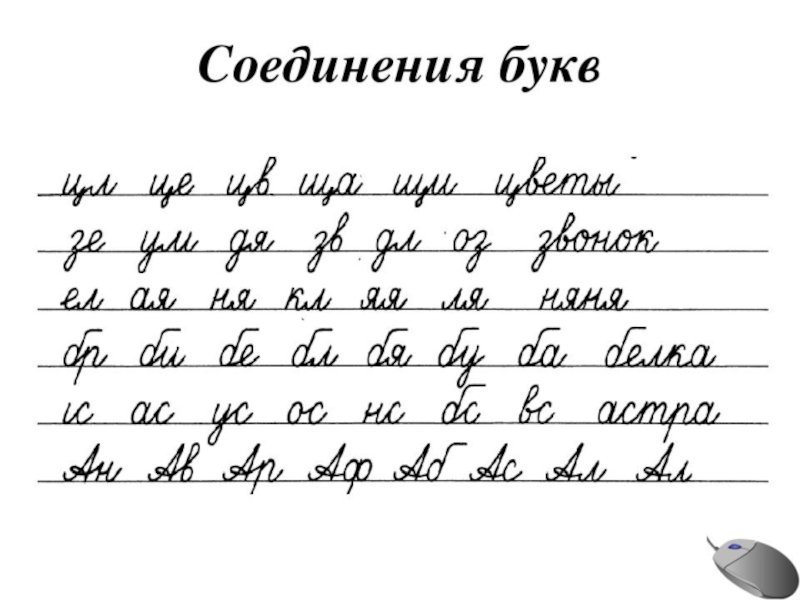 Соединения букв
цл це цв ща щи цветы
зе ум дя зв дл оз звонок
ел ая ня кл яя ля няня
бр би бе бл бя бу ба белка
ас ус ос нс бс вс астра
Ан Ав Ар Аф Аб Ас Ал Ал